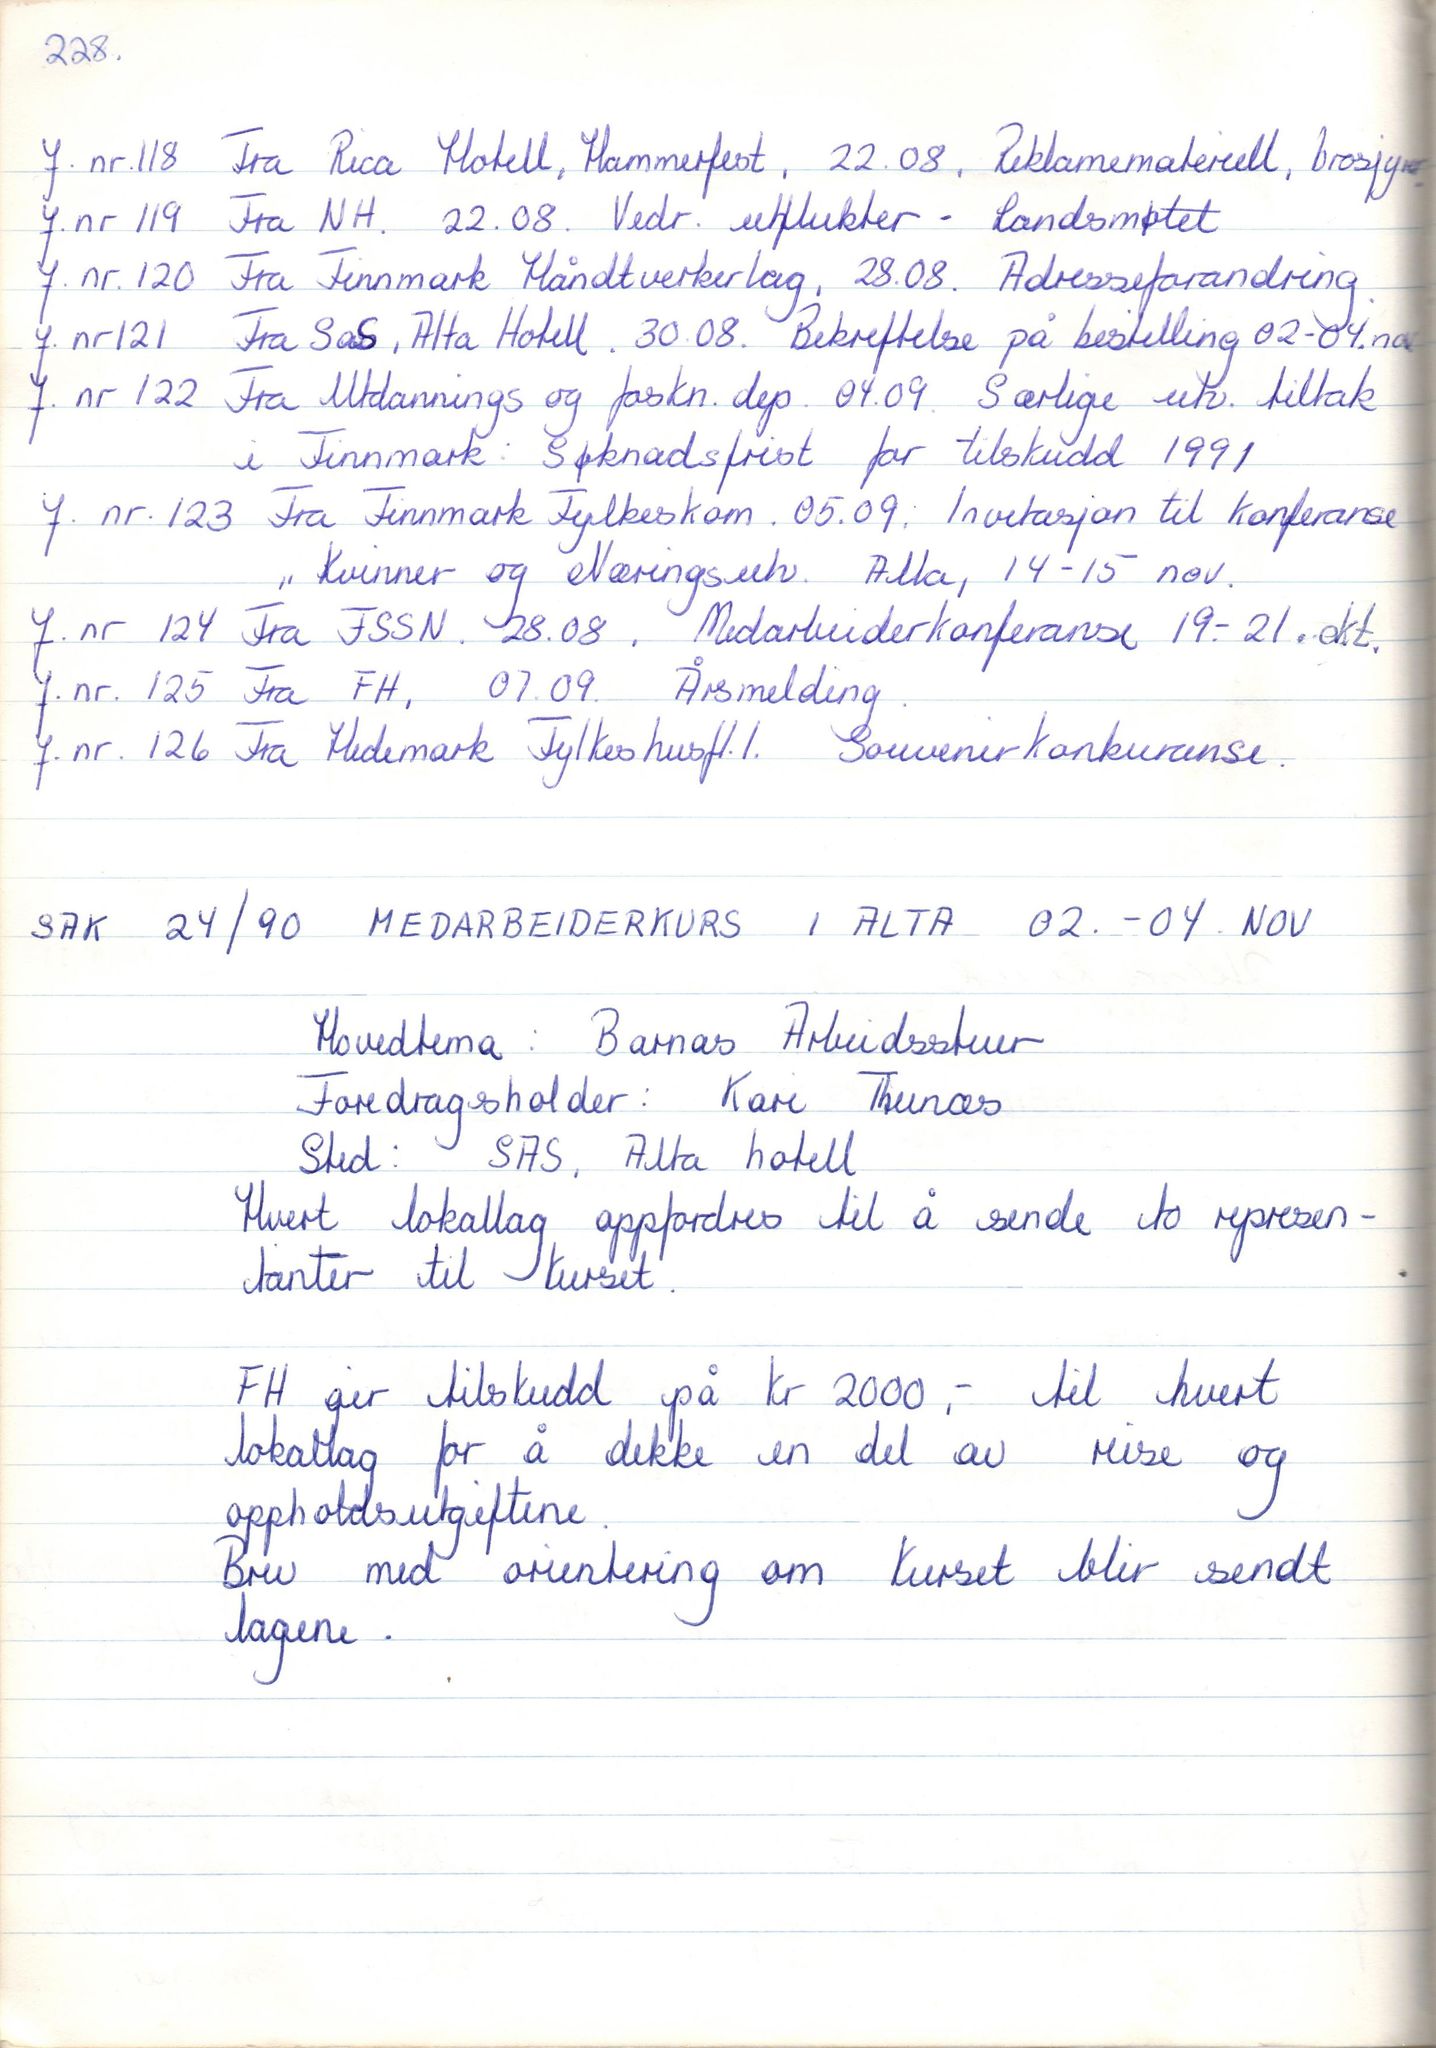 228.
J. nr. 118 Fra Rica Hotell, Hammerfest, 22.08. Reklamemateriell, brosjyrer
J. nr 119 Fra NH. 22.08. Vedr. utflukter - Landsmøtet
J. nr. 120 Fra Finnmark Håndtverkerlag, 28.08. Adresseforandring.
J. nr 121 Fra SaS, Alta Hotell. 30.08. Bekreftelse på bestelling 02-04. nov
J. nr 122 Fra Utdannings og forskn. dep. 04.09. Særlige utv. tiltak
i Finnmark: Søknadsfrist for tilskudd 1991
J. nr. 123 Fra Finnmark Fylkeskom. 05.09. Invitasjon til konferanse
„Kvinner og Næringsutv. Alta, 14-15 nov.
J. nr 124 Fra FSSN. 28.08. Medarbeiderkonferanse 19.-21. okt.
J. nr. 125 Fra FH, 07.09. Årsmelding.
J. nr. 126 Fra Hedemark Fylkeshusfl.l. Souvenirkonkuranse.
SAK 24/90 MEDARBEIDERKURS I ALTA 02.-04. NOV
Hovedtema: Barnas Arbeidsstuer
Foredragsholder: Kari Thunæs
Sted: SAS, Alta hotell
Hvert lokallag oppfordres til å sende to represen-
tanter til kurset.
FH gir tilskudd på kr 2000,- til hvert
lokallag for å dekke en del av reise og
oppholdsutgiftene.
Brev med orientering om kurset blir sendt
lagene.